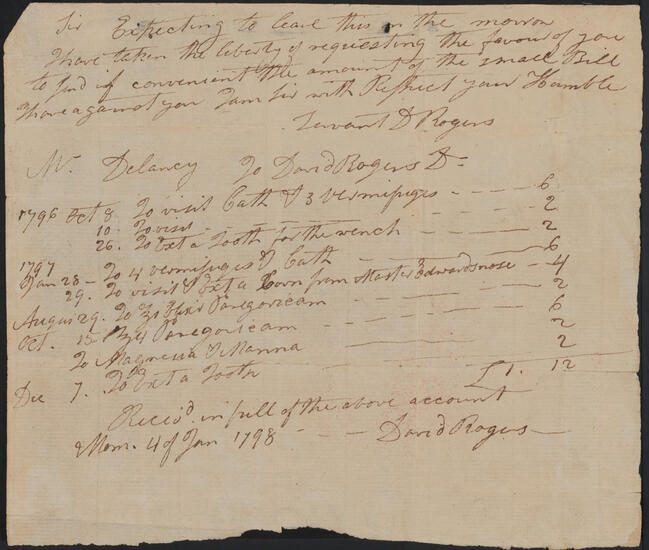 Sir Expecting to leave this in the morrow
I have taken the liberty of requesting the favour of you
to send if convenient the amount of the small Bill
I have against you I am Sir with Respect your Humble
Servant D Rogers
Mr. Delancy To David Rogers Dr
1796 Oct 8 To visit Cath & 3 vermifuges - - - - 6
10. To visit - - - - 2
26. To Ext a Tooth for the wench - - - 2
1797
Jan 28 - To 4 vermifuges & Cath - - - 6
29. To visit & Ext a Corn from Master Edwards nose - 4
August 29. To ʒi Elixr Paregoricam - - - 2
Oct. 15 - ʒ4 Paregoricam - - - 6
To Magnesia & Manna - - - 2
Dec 7. To Ext a Tooth - - - 2
£1. 12
Reciev'd in full of the above account
Morn. 4 of Jan 1798 - - - David Rogers